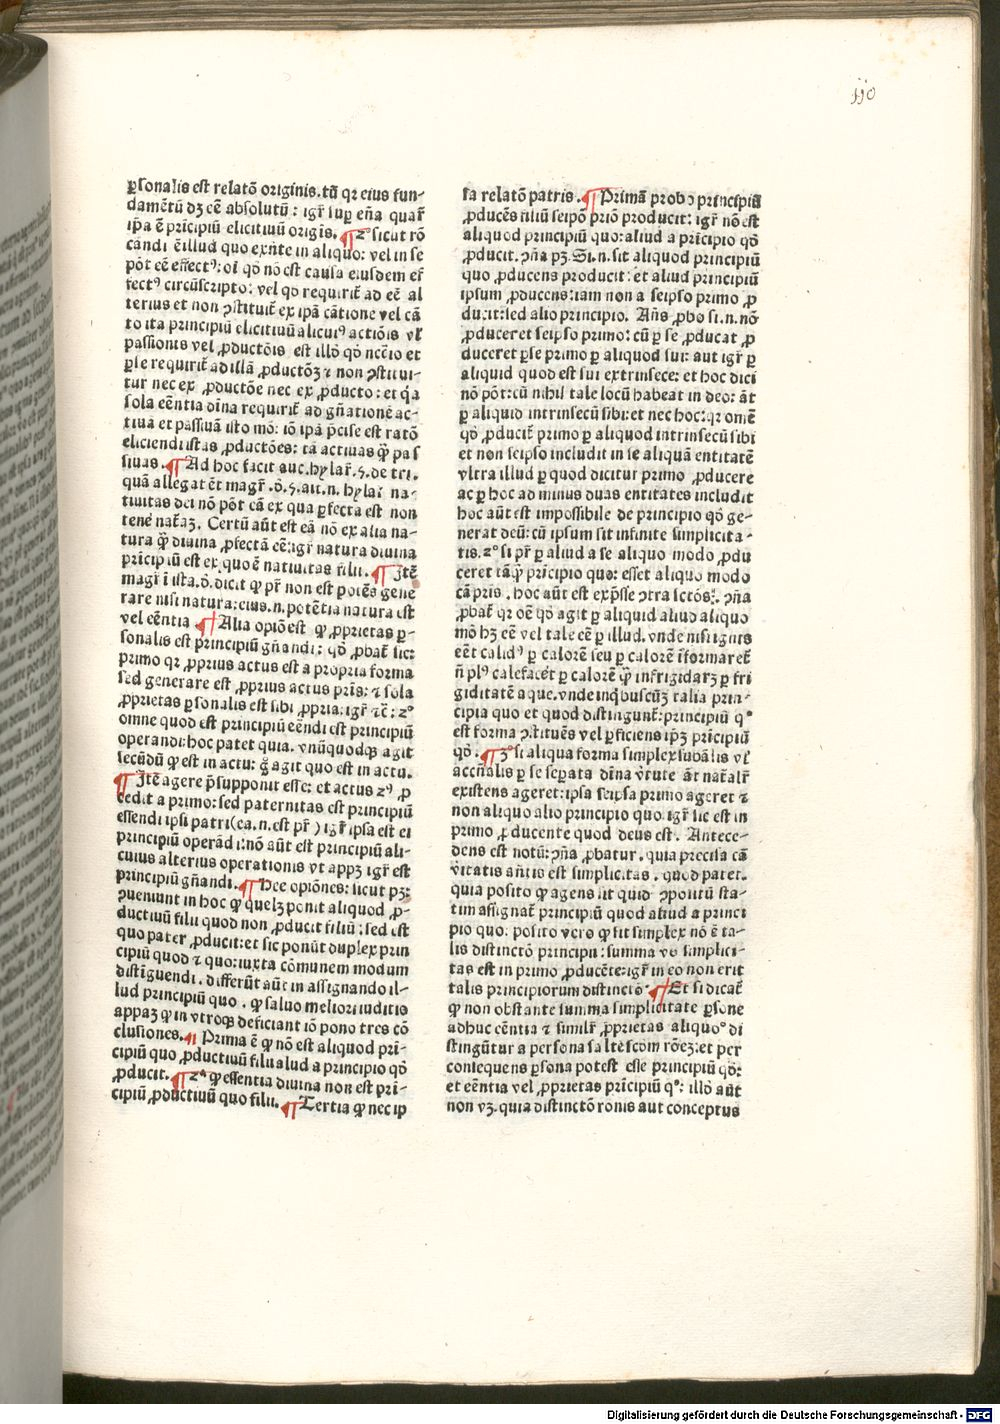 ijo
ꝑsonalis est relatō originis.tū qꝛ eius fun-
damētū dꝫ cē absolutū: igr̄ sup̄ eña quar̄
ip̄a ē prīcipiū elicitiuū origīs. ¶ 2° sicut rō
candi ē illud quo exn̄te in aliquo: vel in se
pōt eē effectꝰ: oī qō nō est causa eiusdem ef
fectꝰ circūscripto: vel qō requirit̄ ad eē al
terius et non ꝯstituit̄ ex ip̄a cātione vel cā
to ita principiū elicitiuū alicuiꝰ actiōis vl̄
passionis vel ꝓductōis est illō qō nccīo et
ꝑ se requirit̄ ad illā ꝓductōꝫ ⁊ non ꝯstitui-
tur nec ex ꝓductōe nec ex ꝓducto: et q̇a
sola eēntia dīna requirit̄ ad gn̄atione ac-
tiuā et passiuā isto mō: iō ip̄a p̄cise est ratō
eliciendi istas ꝓductōes: tā actiuas ꝙ̄ pas
siuas. ¶ Ad hoc facit auc. hylar̄.5. de tri.
quā allegat ēt magr̄ .d.5. ait.n. hylar̄ na-
tiuitas dei nō pōt eā ex qua ꝑfecta est non
tene nat̄aꝫ. Certū aūt est eā nō ex alia na-
tura ꝙ̄ diuina ꝓfectā eē: igr̄ natura diuina
prīcipiū est ex quo ē natiuitas filii. ¶ Itē
magr̄ ī ista.d. dicit ꝙ pr̄ non est potēs gene
rare nisi natura: eius.n. potētia natura est
vel eēntia ¶ Alia opiō est ꝙ ꝓprietas ꝑ-
sonalis est principiū gn̄andi: qō ꝓbat̄ sic:
primo qꝛ ꝓprius actus est a propria forma
sed generare est ꝓprius actus pr̄is: ⁊ sola
ꝓprietas ꝑsonalis est sibi ꝓpria: igr̄ ⁊c̄: 2°
omne quod est principiū eēndi est principiū
operandi: hoc patet quia. vnūquodqꝫ agit
secūdū ꝙ est in actu: ḡ agit quo est in actu.
¶ Itē agere p̄supponit esse: et actus 2ꝰ ꝓ
cedit a primo: sed paternitas est principiū
essendi ipsi patri (ea.n. est pr̄) igr̄ ipsa est ei
principiū operādi: nō aūt est principiū ali-
cuius alterius operationis vt appꝫ igr̄ est
principiū gn̄andi. ¶ Hee opiōnes: sicut pꝫ:
ꝯueniunt in hoc ꝙ quelꝫ ponit aliquod ꝓ-
ductiuū filii quod non ꝓducit filiū: sed est
quo pater ꝓducit: et sic ponūt duplex prin
cipiū quod ⁊ quo: iuxta cōmunem modum
distīguendi. differūt aūt in assignando il-
lud principiū quo . ꝙ saluo meliori iuditio
appaꝫ ꝙ in vtroqꝫ deficiant iō pono tres cō
clusiones. ¶ Prima ē ꝙ nō est aliquod prī-
cipiū quo ꝓductiuū filii aliud a principio qō
ꝓducit. ¶ 2ᵃ ꝙ essentia diuina non est prī-
cipiū ꝓductiuū quo filii. ¶ Tertia ꝙ nec ip
sa relatō patris. ¶ Primā probo principiū
ꝓducēs filiū seipō prīo producit: igr̄ nō est
aliquod principiū quo: aliud a prīcipio qō
ꝓducit. ꝯn̄a pꝫ. Si.n. sit aliquod principiū
quo ꝓducens producit: et aliud principiū
ipsum ꝓducens: iam non a seipso primo ꝓ
ducit: sed alio principio. Añs ꝓbo si.n. nō
ꝓduceret seipso primo: cū ꝑ se ꝓducat ꝓ
duceret ꝑse primo ꝑ aliquod sui: aut igr̄ ꝑ
aliquid quod est sui extrinsece: et hoc dici
nō pōt: cū nihil tale locū habeat in deo: āt
ꝑ aliquid intrinsecū sibi: et nec hoc: qꝛ omē
qō ꝓducit̄ primo ꝑ aliquod intrinsecū sibi
et non seipso includit in se aliquā entitatē
vltra illud ꝑ quod dicitur primo ꝓducere
ac ꝑ hoc ad minus duas entitates includit
hoc aūt est impossibile de principio qō ge-
nerat deū: cū ipsum sit infinite simplicita-
tis. 2° si pr̄ ꝑ aliud a se aliquo modo ꝓdu
ceret tāꝙ̄ prīcipio quo: esset aliquo modo
cā pris . hoc aūt est exp̄sse ꝯtra sctōs: ꝯn̄a
ꝓbat̄ qꝛ oē qō agit ꝑ aliquid aliud aliquo
mō hꝫ eē vel tale eē ꝑ illud. vnde nisi ignis
eēt calidꝰ ꝑ calorē seu ꝑ calorē īformaret̄
n̄ plꝰ calefacet̄ ꝑ calorē ꝙ̄ infrigidarꝫ ꝑ fri
giditatē aque. vnde inqbuscūꝫ talia prin-
cipia quo et quod distingunt̄: principiū q°
est forma ꝯstituēs vel ꝑficiens ip̄ꝫ prīcipiū
qō. ¶ 3° si aliqua forma simplex subālis vl̄
accn̄alis ꝑ se seꝑata dīna v̄tute āt nat̄alr̄
existens ageret: ipsa seipsa primo ageret ⁊
non aliquo alio principio quo igr̄ sic est in
primo ꝓducente quod deus est. Antece-
dens est notū: ꝯn̄a ꝓbatur. quia precisa cā
v̄itatis an̄tis est simplicitas. quod patet.
quia posito ꝙ agens sit quid ꝯpositū sta-
tim assignat̄ principiū quod aliud a princi
pio quo: posito vero ꝙ sit simplex nō ē ta-
lis distinctō principii: summa vō simplici-
tas est in primo ꝓducēte: igr̄ in eo non erit
talis principiorum distinctō. ¶ Et si dicat̄
ꝙ non obstante summa simplicitate ꝑsone
adhuc eēntia ⁊ similr̄ ꝓprietas aliquo° di
stingūtur a persona saltēscom rōeꝫ: et per
consequens ꝑsona potest esse principiū qō:
et eēntia vel ꝓprietas prīcipiū q°: illō aūt
non vꝫ. quia distinctō ronis aut conceptus
Digitalisierung gefördert durch die Deutsche Forschungsgemeinschaft - DFG